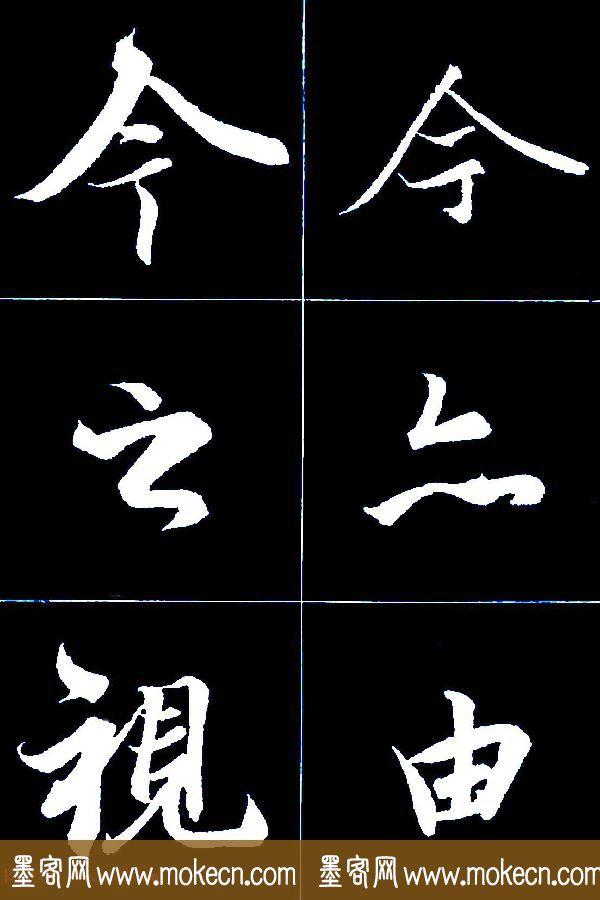 今亦由
今之視
墨客网 www.mokecn.com
墨客网 www.mokecn.com